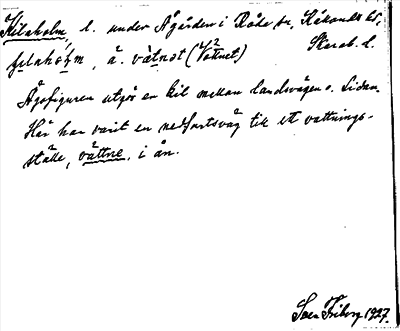 Kilaholm, l. under Ågården i Råda sn, Kålands hd,
Skarab. l.
å. vàtnət (Vattnet)
Ägofiguren utgör en kil mellan landsvägen o. Lidan.
Här har varit en nedfartsväg till ett vattnings-
ställe, vättne, i ån.
Sven Friberg 1927.